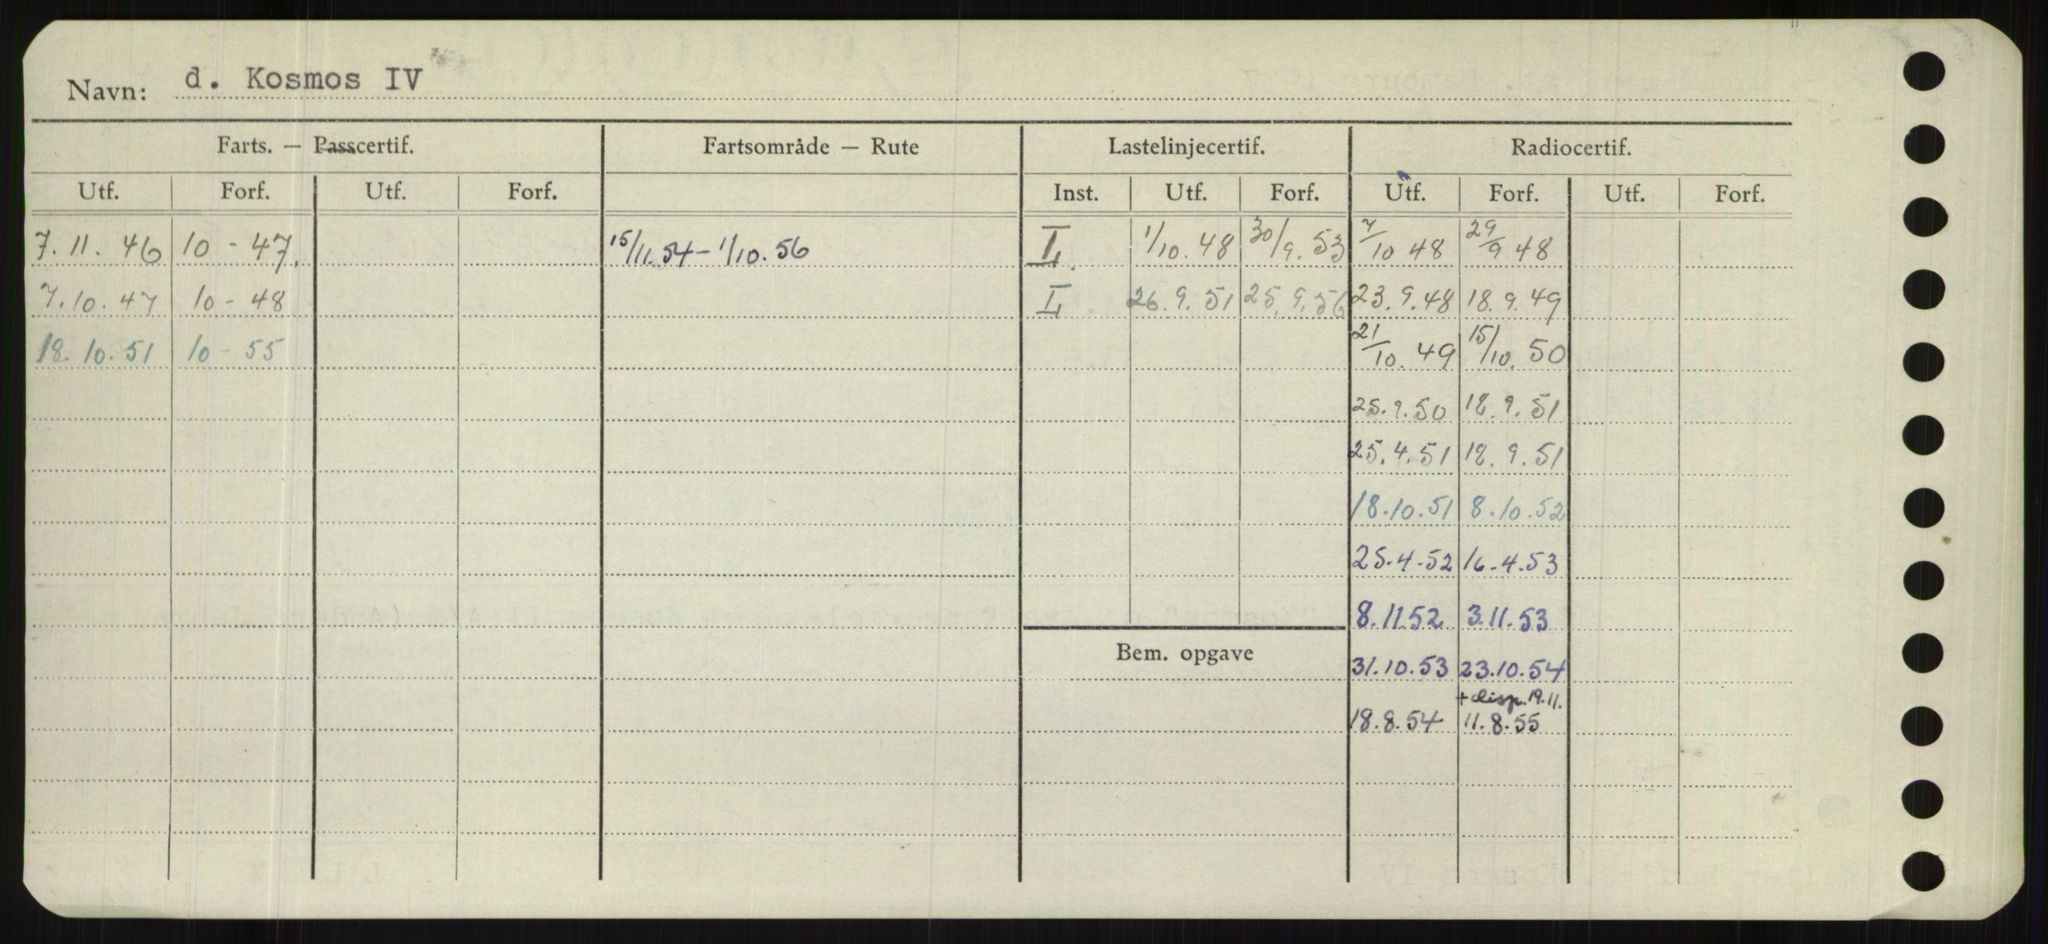 Navn: d. Kosmos IV
Farts. — Passcertif. Fartsområde — Rute Lastelinjecertif. Radiocertif.
Utf. Forf. Utf. Forf. Inst. Utf. Forf. Utf. Forf. Utf. Forf.
7.11.46 10 - 47. 15/11.54 - 1/10.56 L 1/10.48 30/9.53 7/10 48 29/9 48
7.10.47 10 - 48 L 26.9.51 25.9.56 23.9.48 18.9.49
18.10.51 10 - 55 21/10.49 15/10.50
25.9.50 18.9.51
25.4.51 18.9.51
18.10.51 8.10.52
25.4.52 16.4.53
8.11.52 3.11.53
Bem. opgave
31.10.53 23.10.54
+ disp. 19.11.
18.8.54 11.8.55